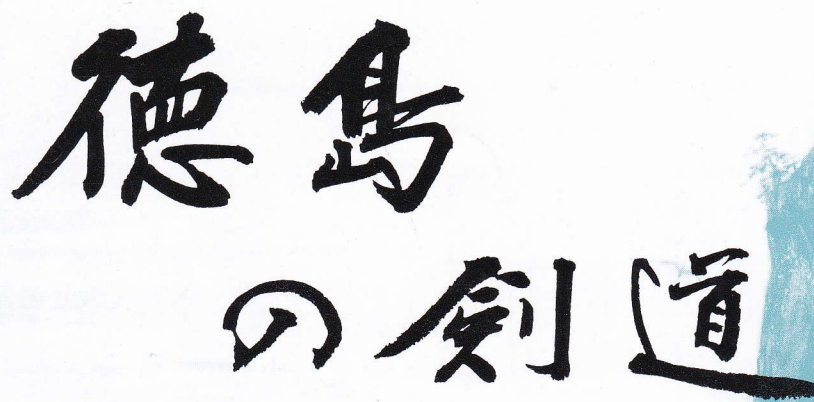 徳島
の剣道